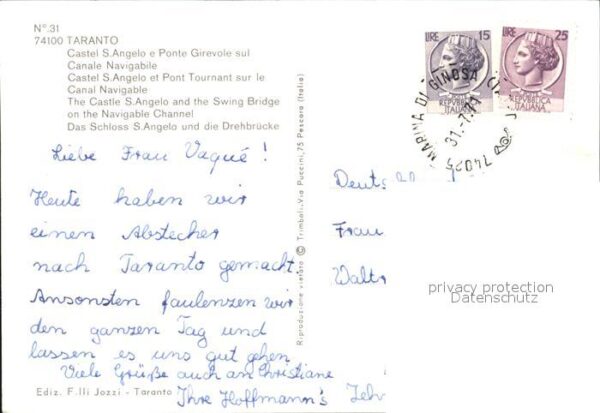 N°.31
74100 TARANTO
Castel S.Angelo e Ponte Girevole sul
Canale Navigabile
Castel S.Angelo et Pont Tournant sur le
Canal Navigable
The Castle S.Angelo and the Swing Bridge
on the Navigable Channel
Das Schloss S.Angelo und die Drehbrücke
Liebe Frau Vaqué!
Heute haben wir
einen Abstecher
nach Taranto gemacht.
Ansonsten faulenzen wir
den ganzen Tag und
lassen es uns gut gehen
Viele Grüße auch an Christiane
Ihre Hoffmann's
Ediz. F.lli Jozzi - Taranto
Riproduzione vietata © Trimboli. Via Puccini, 75 Pescara (Italia)
LIRE 15
REPVBBLICA
ITALIANA
LIRE 25
REPVBBLICA
ITALIANA
74025 MARINA DI GINOSA (TA
31.-7.79
Frau
Walt
privacy protection
Datenschutz